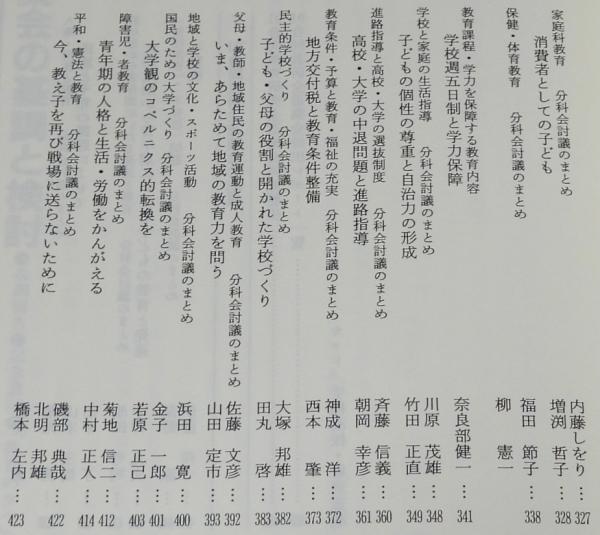 家庭科教育　分科会討議のまとめ　内藤しをり…327
消費者としての子ども　増渕　哲子…328
保健・体育教育　分科会討議のまとめ　福田　節子…338
柳　憲一
教育課程・学力を保障する教育内容
学校週五日制と学力保障　奈良部健一…341
学校と家庭の生活指導　分科会討議のまとめ　川原　茂雄…348
子どもの個性の尊重と自治力の形成　竹田　正直…349
進路指導と高校・大学の選抜制度　分科会討議のまとめ　斉藤　信義…360
高校・大学の中退問題と進路指導　朝岡　幸彦…361
教育条件・予算と教育・福祉の充実　分科会討議のまとめ　神成　洋…372
地方交付税と教育条件整備　西本　肇…373
民主的学校づくり　分科会討議のまとめ　大塚　邦雄…382
子ども・父母の役割と開かれた学校づくり　田丸　啓…383
父母・教師・地域住民の教育運動と成人教育　分科会討議のまとめ　佐藤　文彦…392
いま、あらためて地域の教育力を問う　山田　定市…393
地域と学校の文化・スポーツ活動　分科会討議のまとめ　浜田　寛…400
国民のための大学づくり　分科会討議のまとめ　金子　一郎…401
大学観のコペルニクス的転換を　若原　正己…403
障害児・者教育　分科会討議のまとめ　菊地　信二…412
青年期の人格と生活・労働をかんがえる　中村　正人…414
平和・憲法と教育　分科会討議のまとめ　磯部　典哉…422
北明　邦雄
今、教え子を再び戦場に送らないために　橋本　左内…423